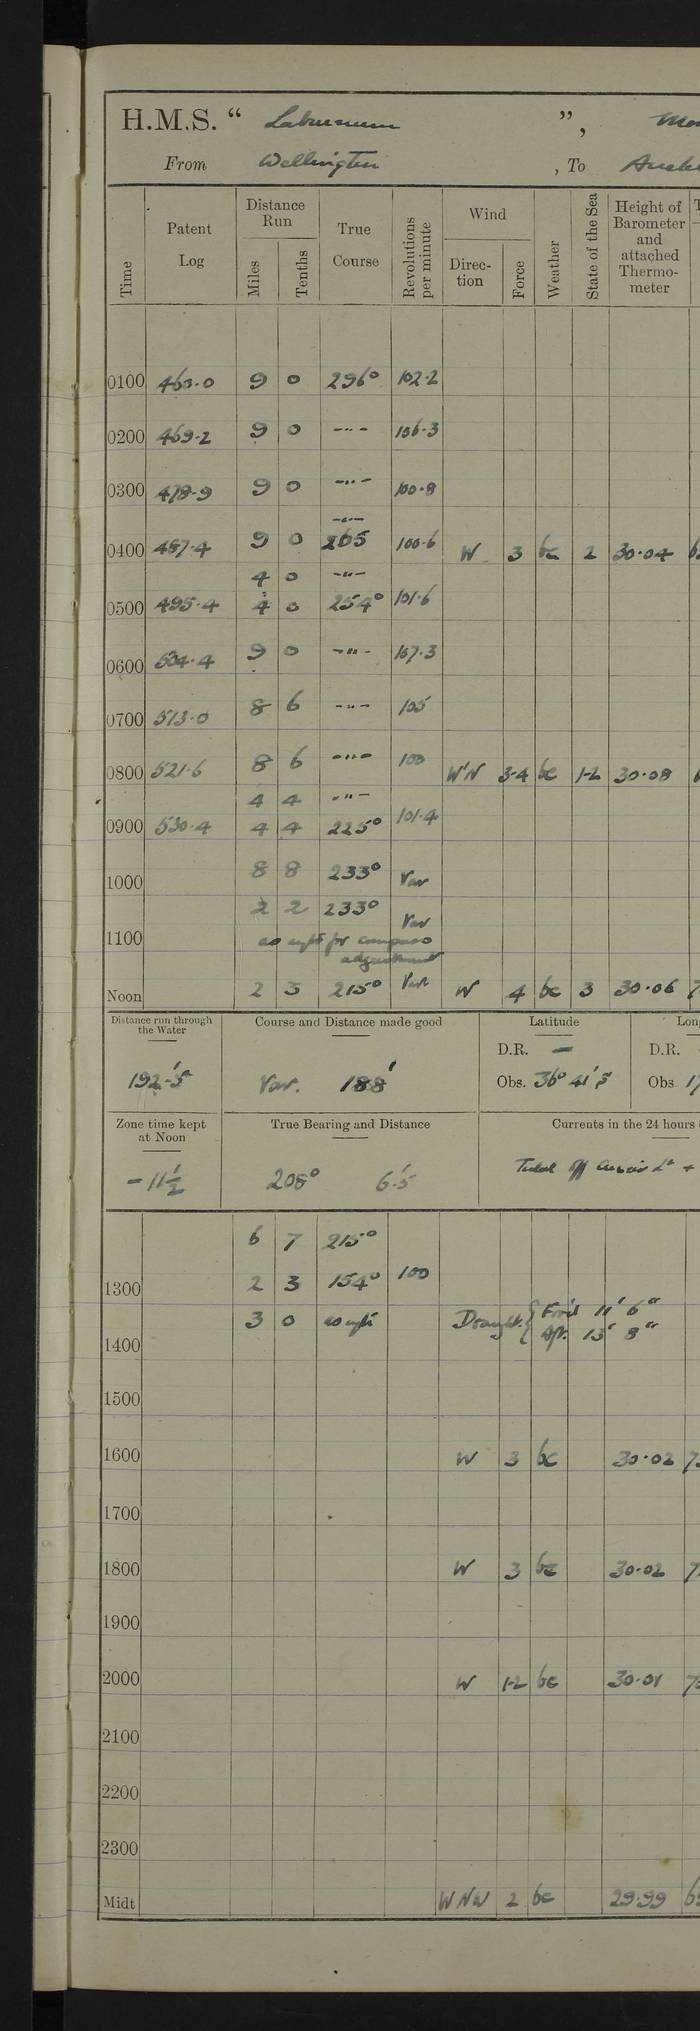 H.M.S. “ Laburnum ”,
From Wellington , To
Time Patent Log Distance Run Miles Tenths True Course Revolutions per minute Wind Direction Force Weather State of the Sea Height of Barometer and attached Thermometer
0100 460.0 9 0 296° 102.2
0200 469.2 9 0 -"- 106.3
0300 478.9 9 0 -"- 100.8
-"-
0400 487.4 9 0 265 100.6 W 3 bc 2 30.04
4 0 -"-
0500 495.4 4 0 254° 101.6
0600 504.4 9 0 -"- 107.3
0700 513.0 8 6 -"- 105
0800 521.6 8 6 -"- 100 W'N 3-4 bc 1-2 30.08
4 4 -"-
0900 530.4 4 4 225° 101.4
1000 8 8 233° Var
2 2 233° Var
1100 as reqt for compass
adjustment
Noon 2 5 215° Var W 4 bc 3 30.06
Distance run through the Water Course and Distance made good Latitude
D.R. — D.R.
192'.5 Var. 188' Obs. 36° 41'.5 Obs.
Zone time kept at Noon True Bearing and Distance Currents in the 24 hours
- 11½ 208° 6'.5 Tidal off
6 7 215°
1300 2 3 154° 100
3 0 as reqt Draught { For'd 11' 6"
1400 Aft. 13' 8"
1500
1600 W 3 bc 30.02
1700
1800 W 3 bc 30.02
1900
2000 W 1-2 bc 30.01
2100
2200
2300
Midt WNW 2 bc 29.99